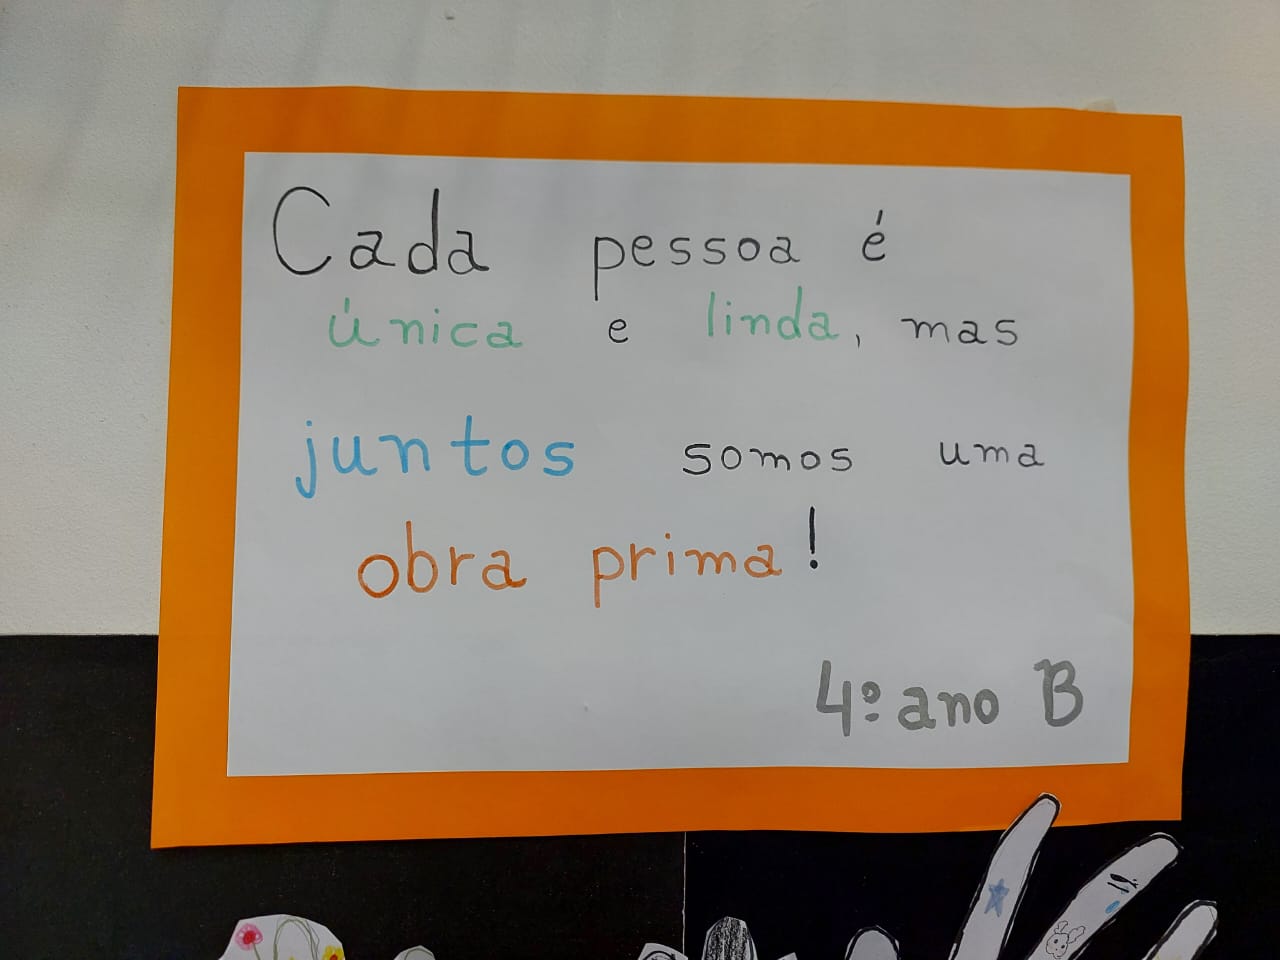 Cada pessoa é
única e linda, mas
juntos somos uma
obra prima!
4º ano B